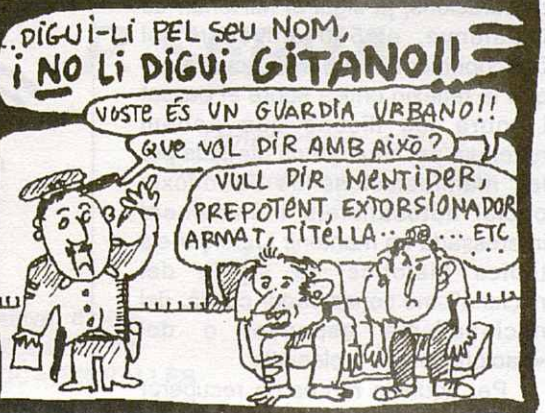 ..DiGUi-Li PEL SEU NOM,
i NO Li DiGUi GiTANO!!
VOSTE ÉS UN GUARDIA URBANO!!
QUE VOL DIR AMB AIXÒ?
VULL DIR MENTIDER,
PREPOTENT, EXTORSIONADOR
ARMAT, TITELLA..... ETC
...